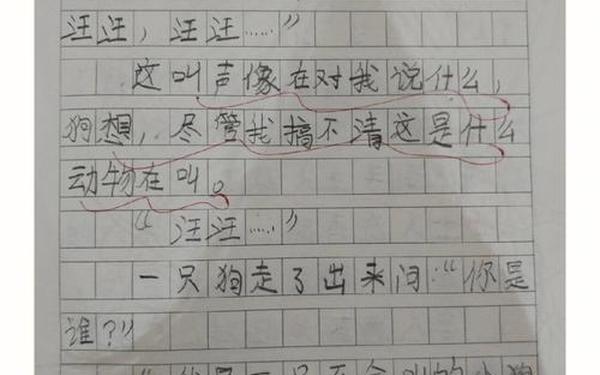 汪汪，汪汪……”
这叫声像在对我说什么，
狗想，尽管我搞不清这是什么
动物在叫。
“汪汪……”
一只狗走了出来问：“你是
谁？”
“我是一只不会叫的小狗